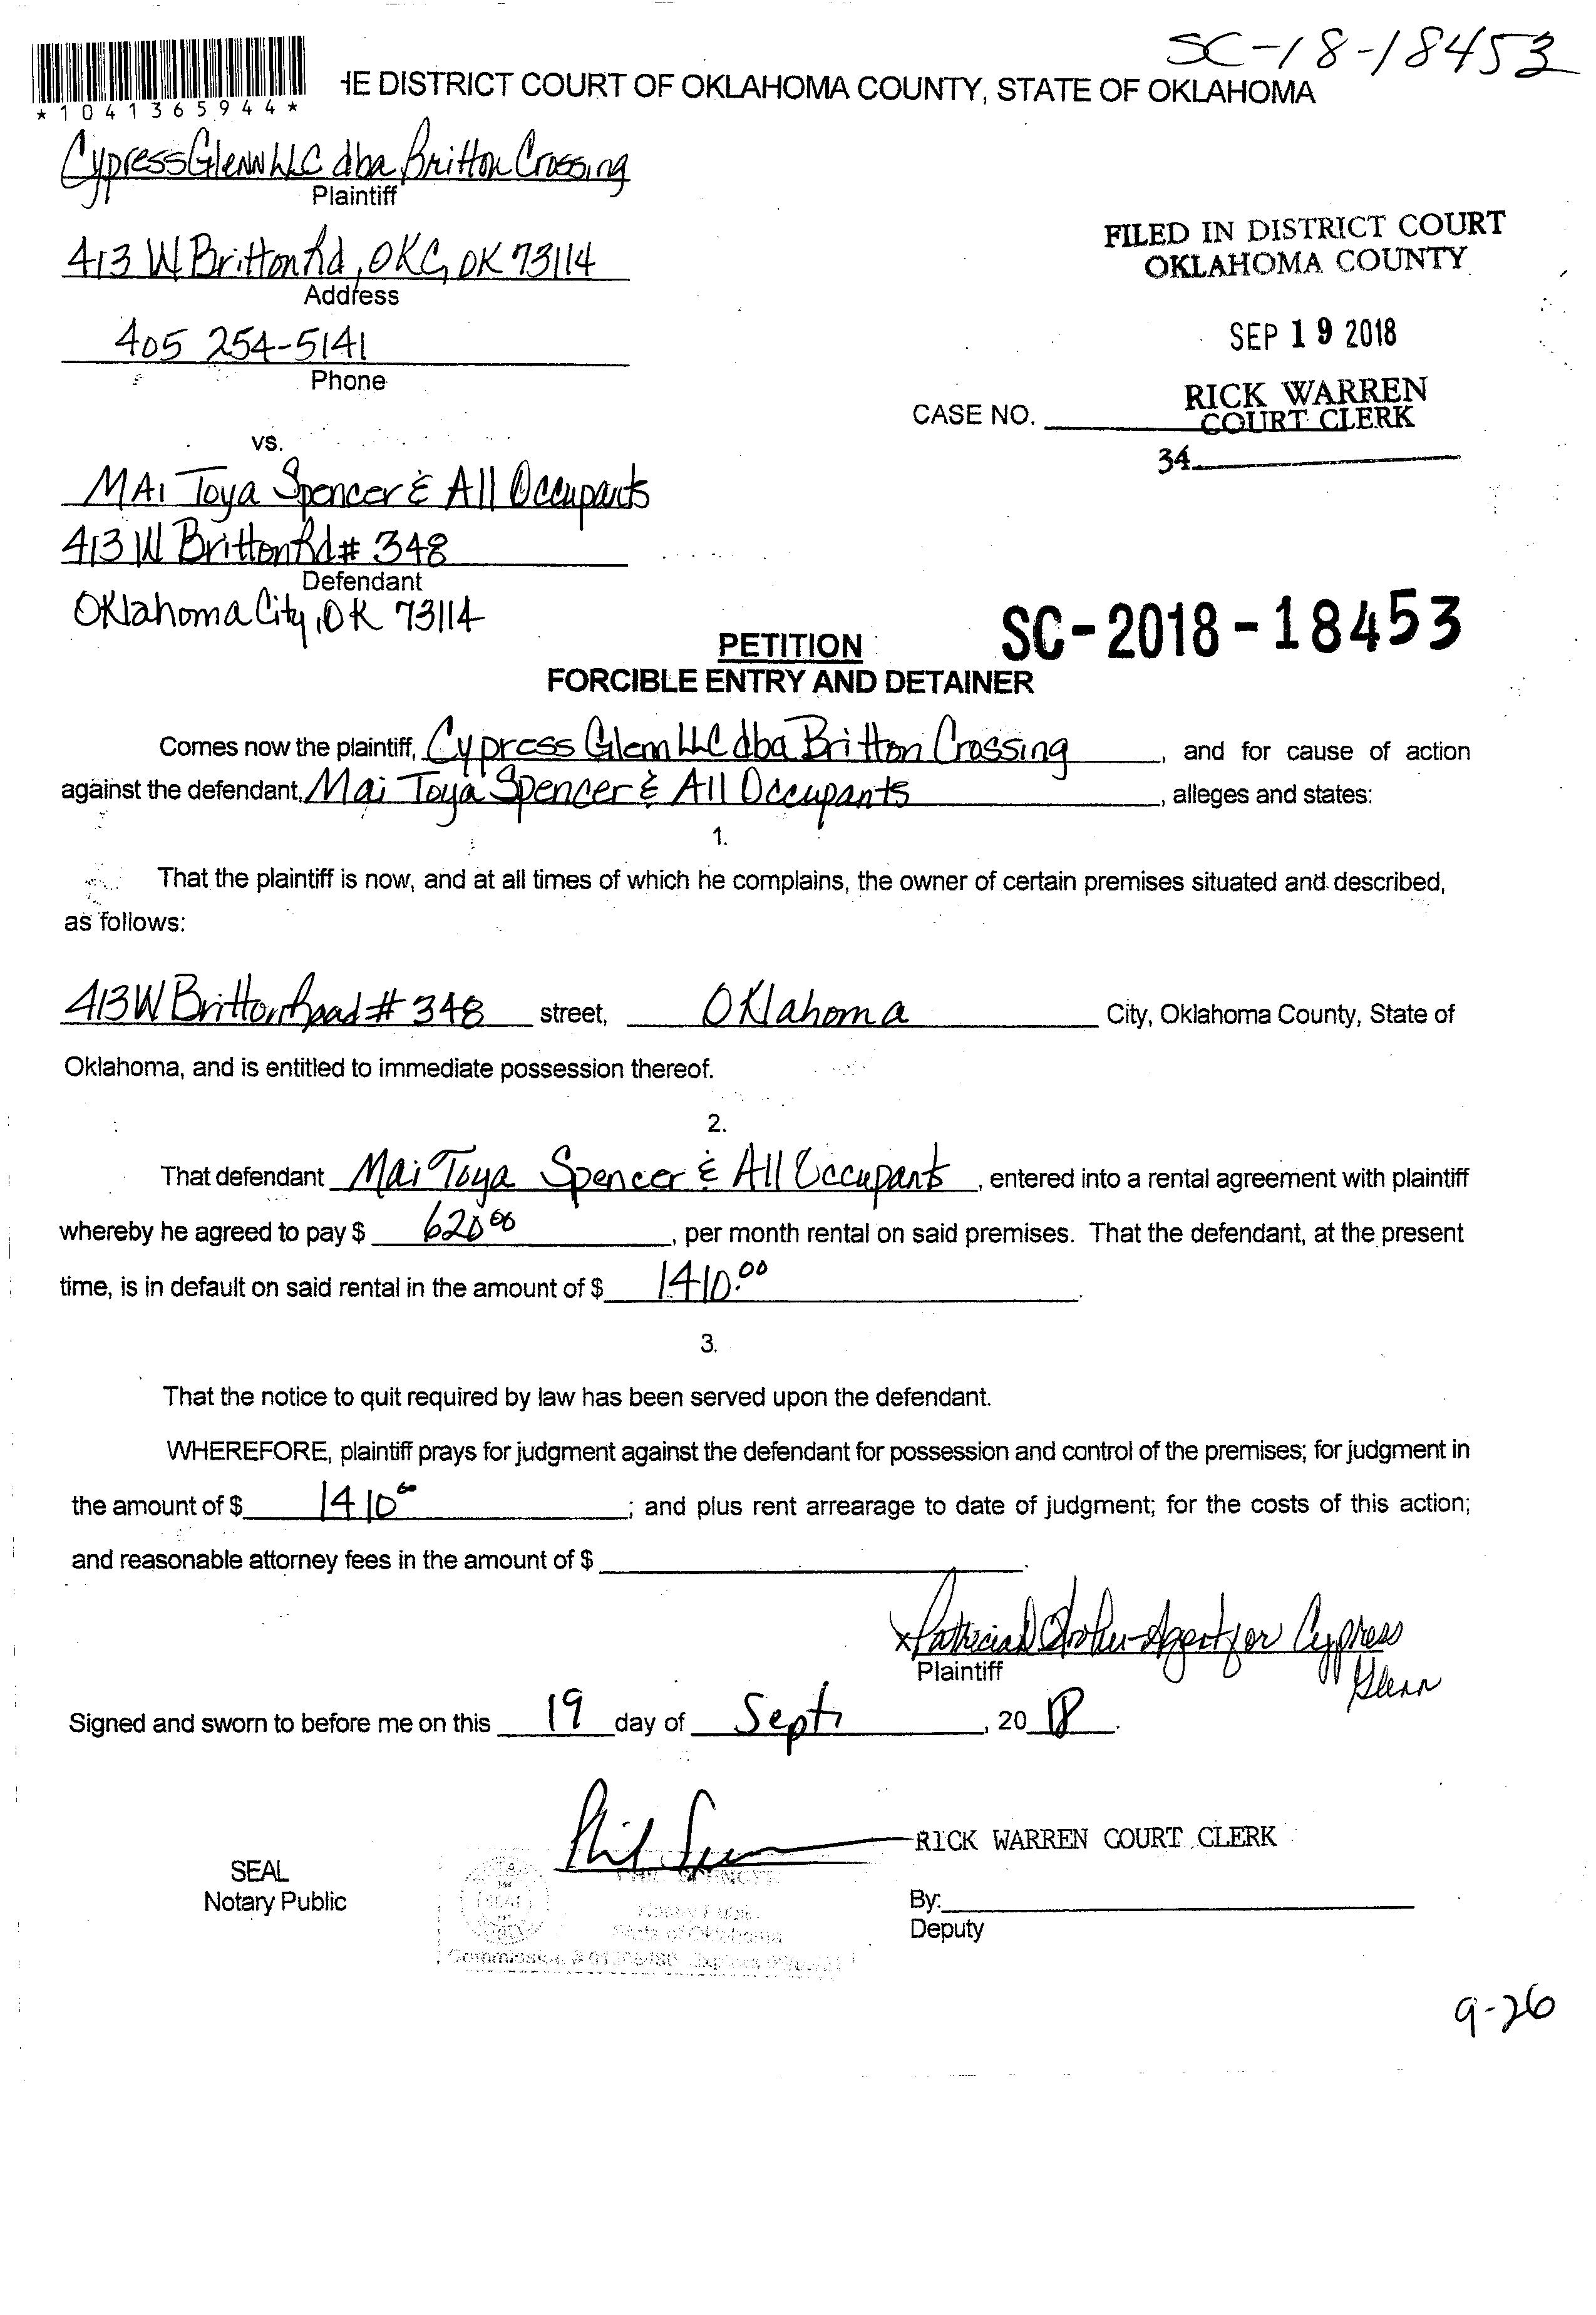 SC-18-18453
*1041365944*
HE DISTRICT COURT OF OKLAHOMA COUNTY, STATE OF OKLAHOMA
Cypress Glenn LLC dba Britton Crossing
Plaintiff
413 W Britton Rd, OKC, OK 73114
Address
405 254-5141
Phone
FILED IN DISTRICT COURT
OKLAHOMA COUNTY
SEP 19 2018
RICK WARREN
COURT CLERK
CASE NO.
34
vs.
MAi Toya Spencer & All Occupants
413 W Britton Rd # 348
Defendant
Oklahoma City, OK 73114
SC-2018-18453
PETITION
FORCIBLE ENTRY AND DETAINER
Comes now the plaintiff, Cypress Glenn LLC dba Britton Crossing, and for cause of action
against the defendant, Mai Toya Spencer & All Occupants, alleges and states:
1.
That the plaintiff is now, and at all times of which he complains, the owner of certain premises situated and described,
as follows:
413 W Britton Road # 348 street, Oklahoma City, Oklahoma County, State of
Oklahoma, and is entitled to immediate possession thereof.
2.
That defendant Mai Toya Spencer & All Occupants, entered into a rental agreement with plaintiff
whereby he agreed to pay $ 620.00, per month rental on said premises. That the defendant, at the present
time, is in default on said rental in the amount of $ 1410.00.
3.
That the notice to quit required by law has been served upon the defendant.
WHEREFORE, plaintiff prays for judgment against the defendant for possession and control of the premises; for judgment in
the amount of $ 1410.00; and plus rent arrearage to date of judgment; for the costs of this action;
and reasonable attorney fees in the amount of $ .
x Patricia Agent for Cypress
Glenn
Plaintiff
Signed and sworn to before me on this 19 day of Sept, 2018.
RICK WARREN COURT CLERK
SEAL
Notary Public
Notary Public
State of Oklahoma
Commission #
By:
Deputy
9-26